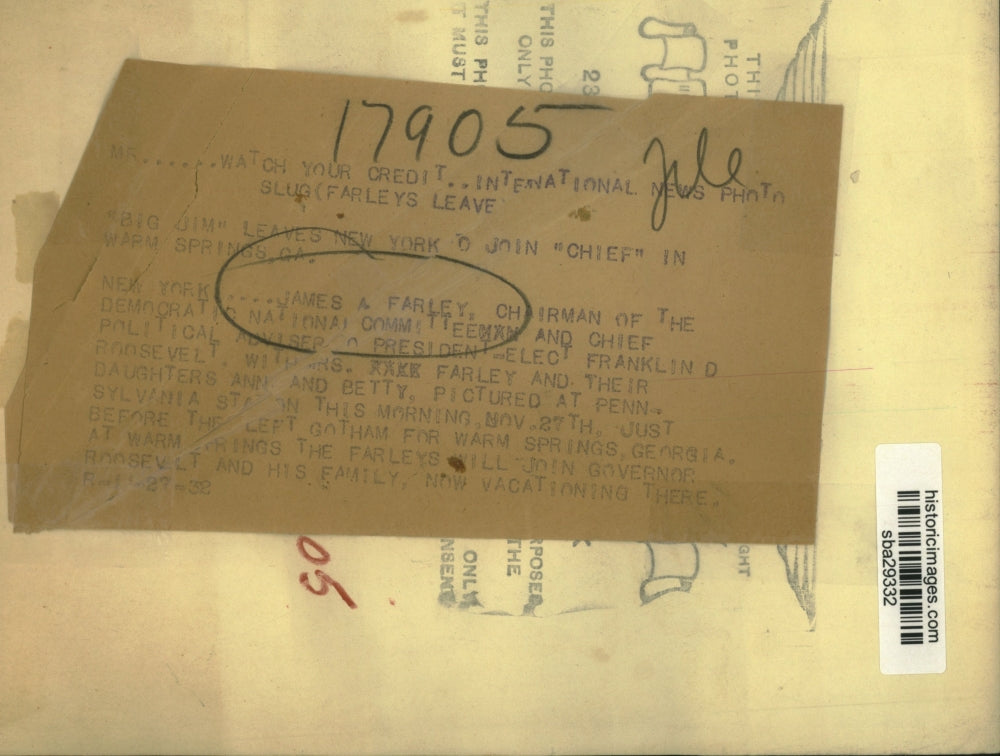 17905
MR.......WATCH YOUR CREDIT..INTERNATIONAL NEWS PHOTO
SLUG(FARLEYS LEAVE
"BIG JIM" LEAVES NEW YORK O JOIN "CHIEF" IN
WARM SPRINGS,GA.
NEW YORK ....JAMES A FARLEY, CHAIRMAN OF THE
DEMOCRATIC NATIONAL COMMITTEEMXN AND CHIEF
POLITICAL ADVISER O PRESIDENT-ELECT FRANKLIN D
ROOSEVELT. WITH RS. XXXX FARLEY AND THEIR
DAUGHTERS ANN AND BETTY, PICTURED AT PENN-
SYLVANIA STATION THIS MORNING,NOV.27TH, JUST
BEFORE THE LEFT GOTHAM FOR WARM SPRINGS,GEORGIA.
AT WARM SPRINGS THE FARLEYS WILL JOIN GOVERNOR
ROOSEVELT AND HIS FAMILY, NOW VACATIONING THERE.
R-11-27-32
05
THIS PH
T MUST
THIS PHO
ONLY
23
THI
PHOT
NSENT
ONLY
THE
RPOSES
GHT
historicimages.com
sba29332